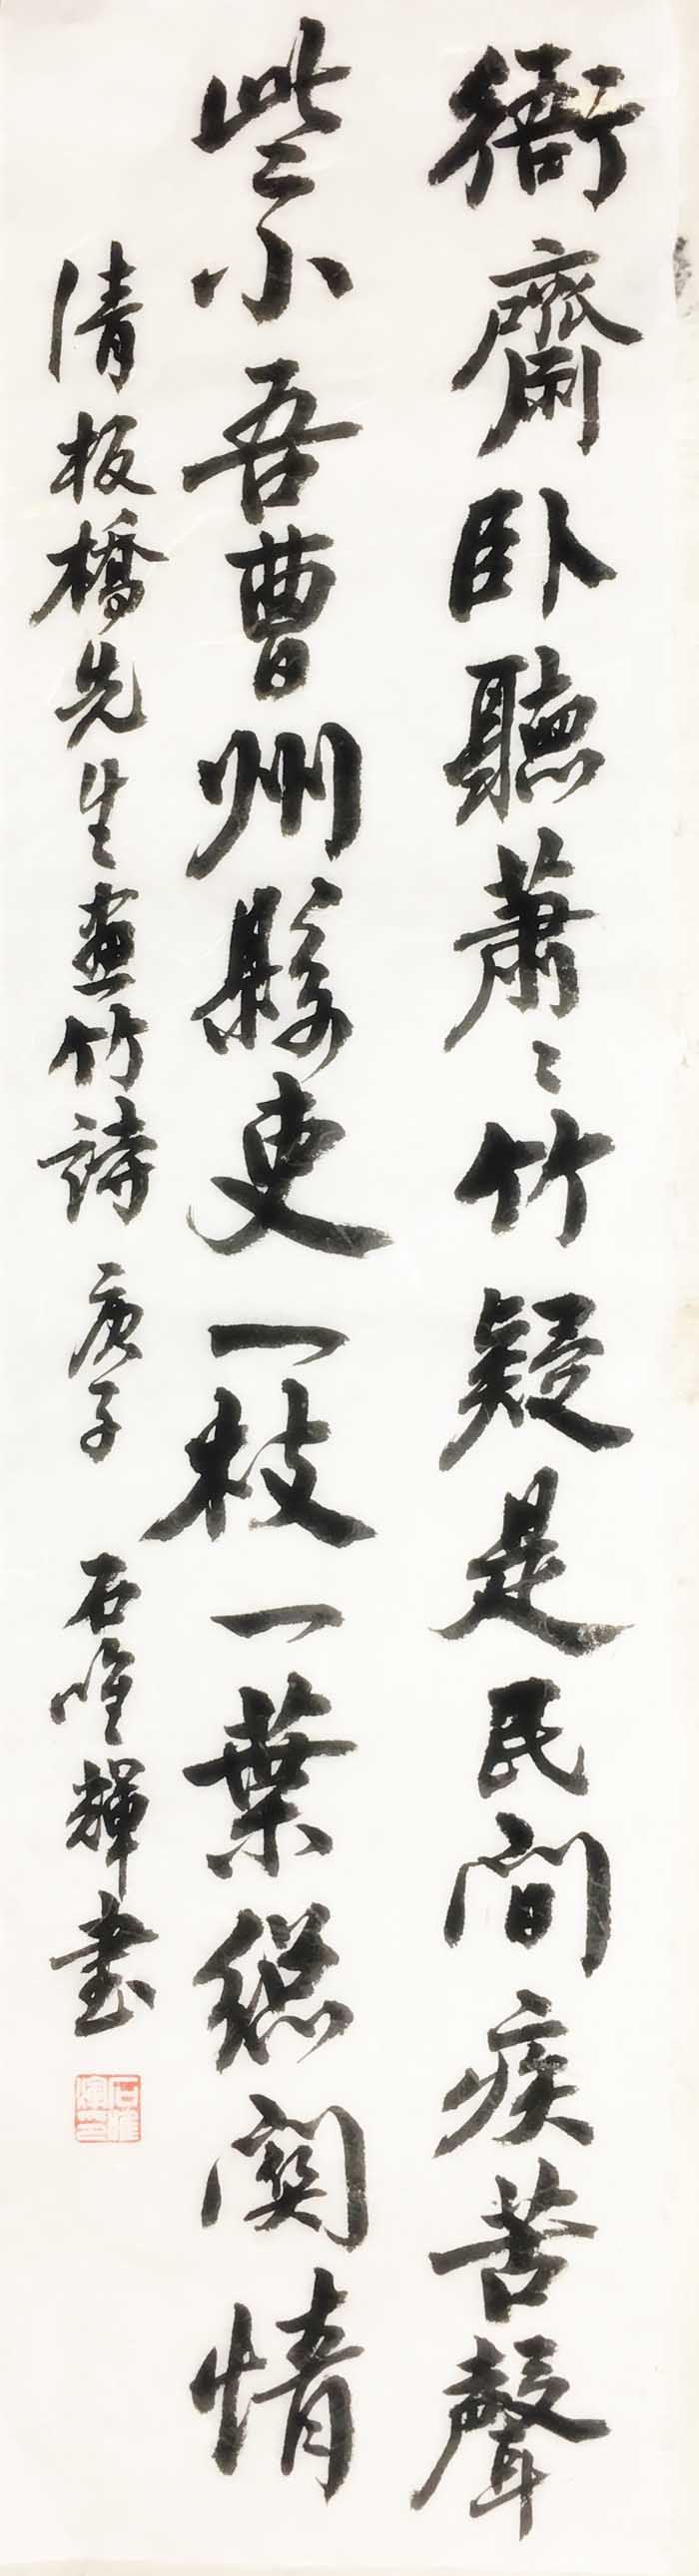 衙齋卧聽蕭〻竹疑是民間疾苦聲
些小吾曹州縣吏一枝一葉總關情
清板橋先生畫竹詩 庚子 石唯輝書